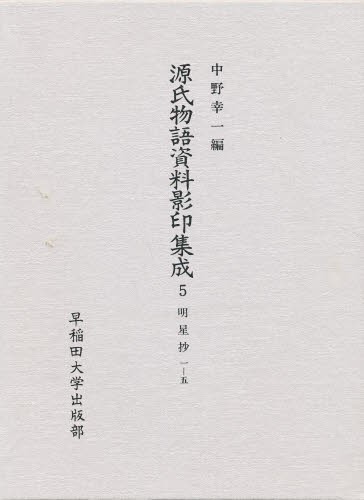 中野幸一編
源氏物語資料影印集成 5 明星抄 一－五
早稲田大学出版部